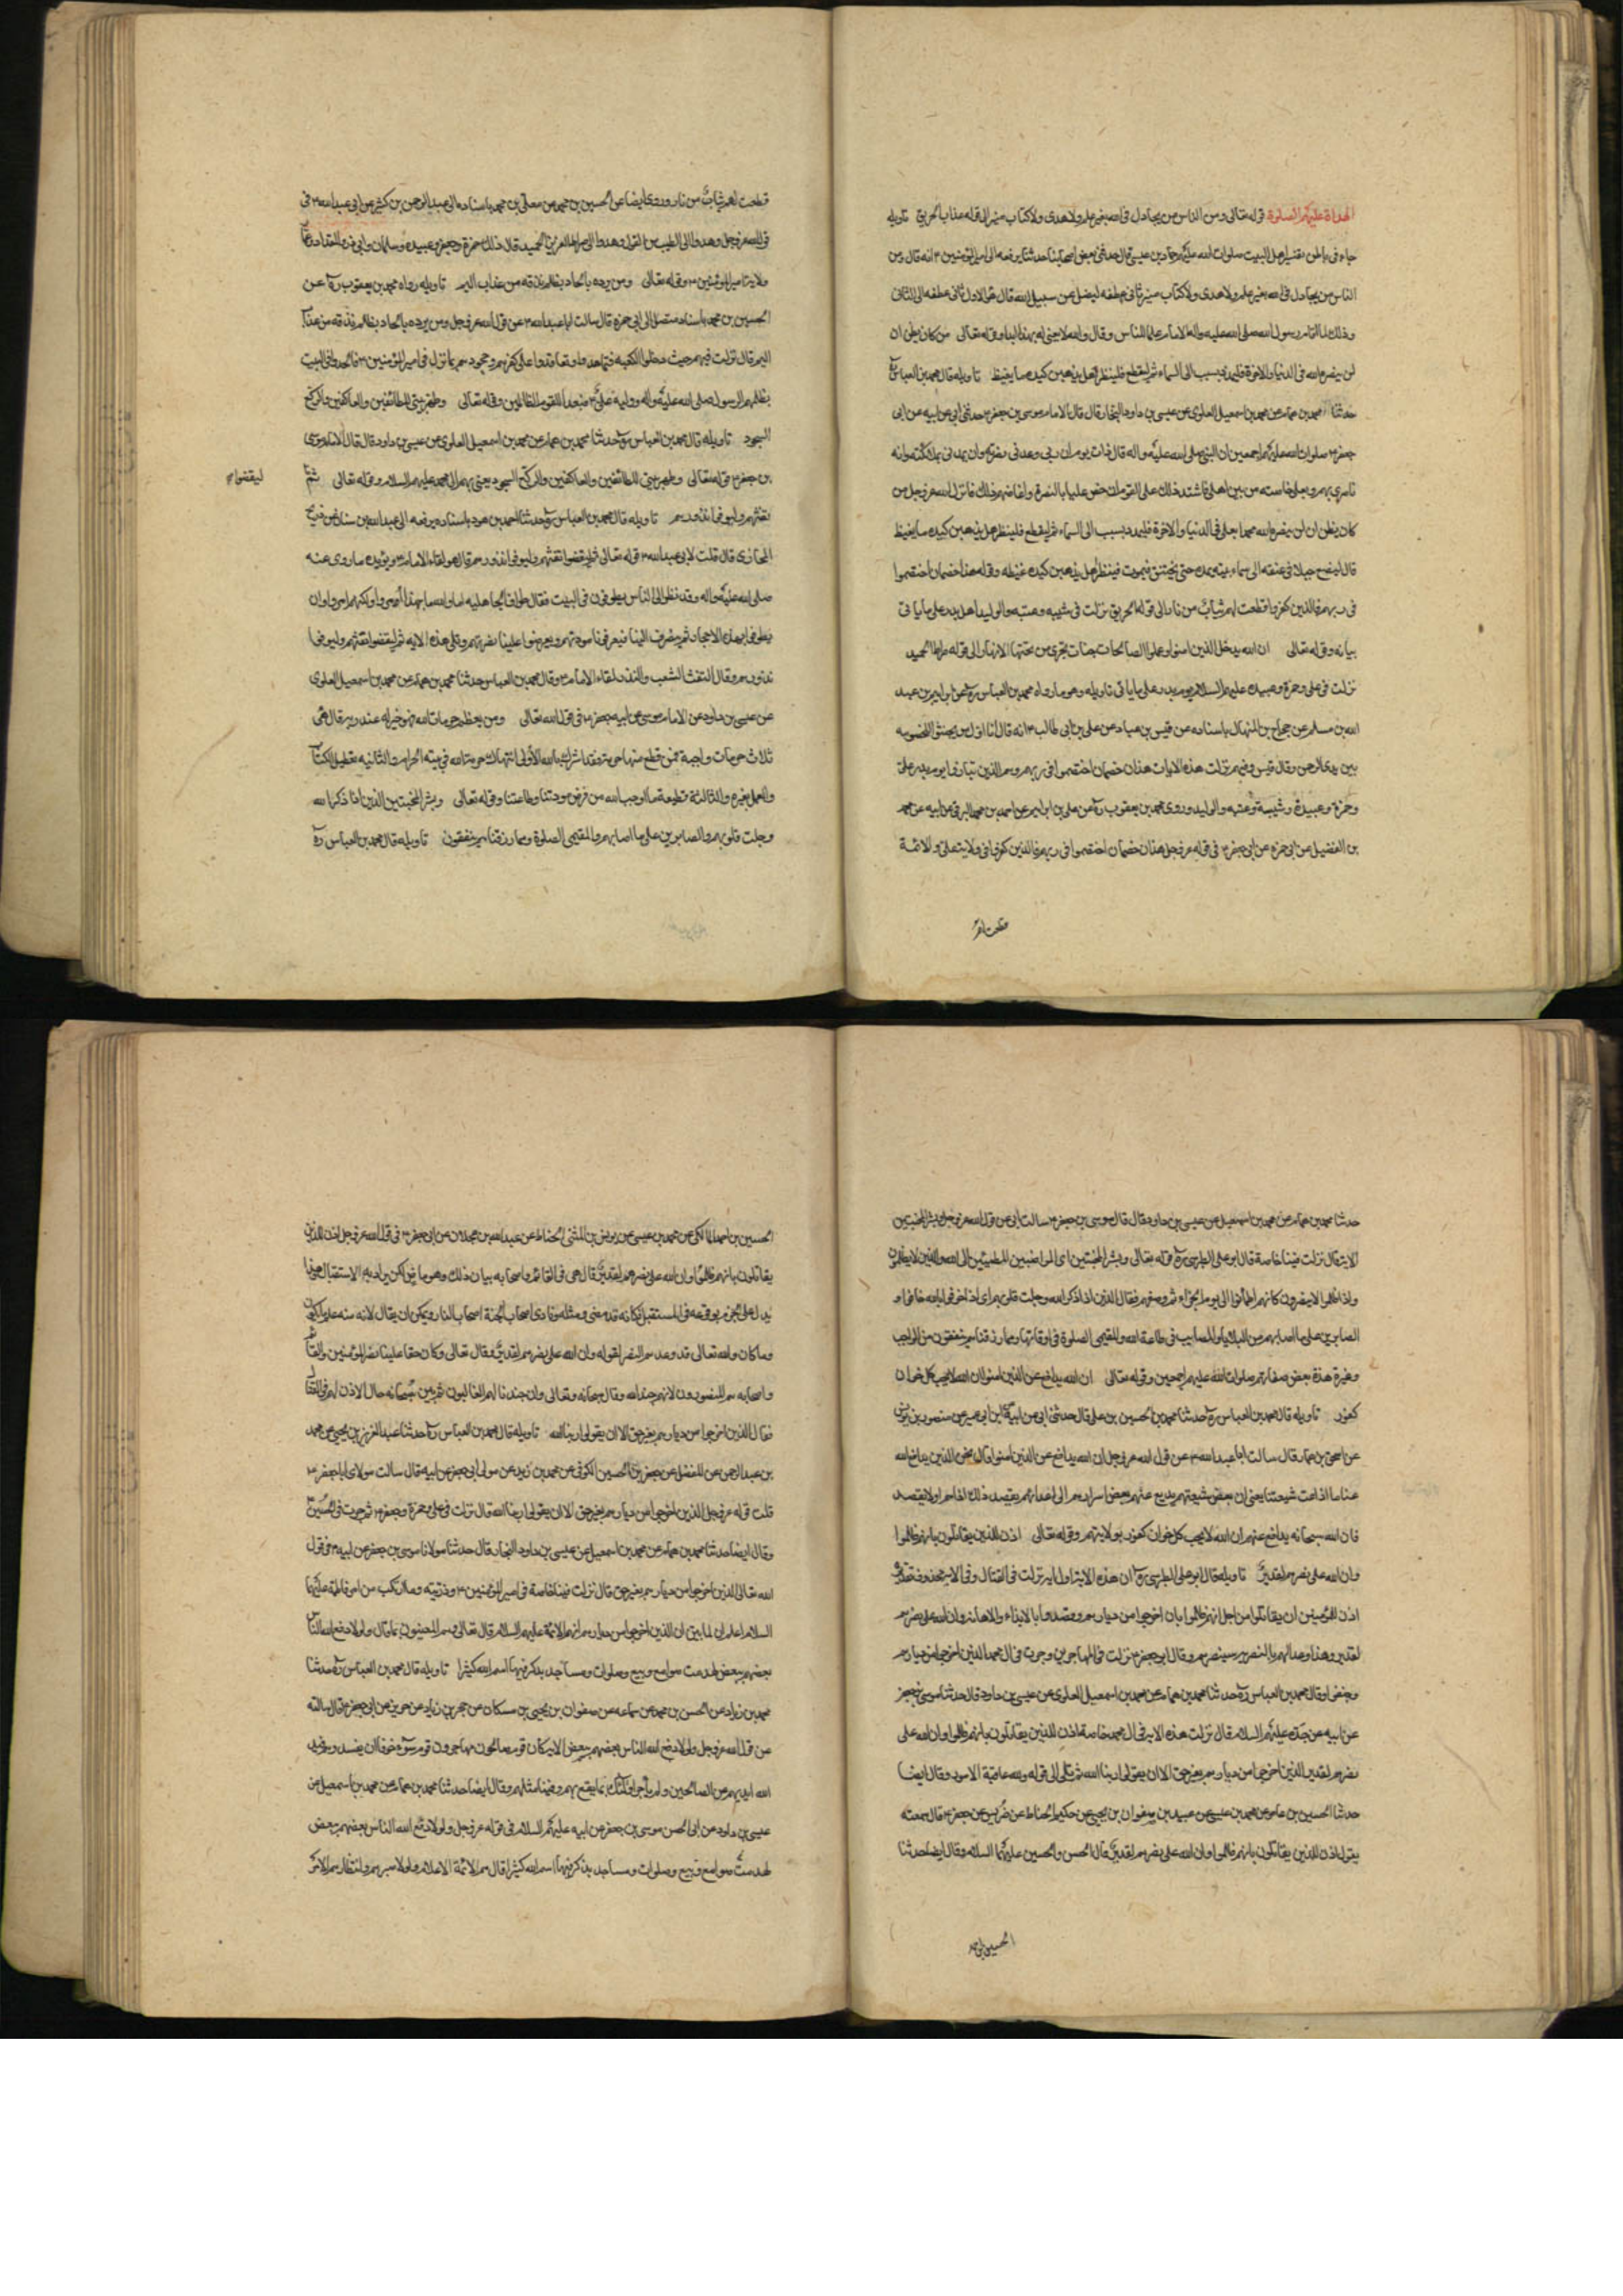 الهداة عليهم الصلوة قوله تعالى ومن الناس من يجادل في الله بغير علم ولا هدى ولا كتاب منير الى قوله عذاب الحريق تاويله
جاء في باطن تفسير اهل البيت صلوات الله عليهم حماد بن عيسى قال حدثني بعض اصحابنا حديثا يرفعه الى امير المؤمنين ع انه قال ومن
الناس من يجادل في الله بغير علم ولا هدى ولا كتاب منير ثاني عطفه ليضل عن سبيل الله قال هو الاول ثاني عطفه الى الثاني
وذلك لما اقام رسول الله صلى الله عليه واله الامام علما للناس وقال والله لا يفي له بهذا ابدا وقوله تعالى من كان يظن ان
لن ينصره الله في الدنيا والاخرة فليمدد بسبب الى السماء ثم ليقطع فلينظر هل يذهبن كيده ما يغيظ تاويله قال محمد بن العباس ره
حدثنا محمد بن همام عن محمد بن اسمعيل العلوي عن عيسى بن داود النجار قال قال الامام موسى بن جعفر ع حدثني ابي عن ابيه عن ابي
جعفر صلوات الله عليهم اجمعين ان النبي صلى الله عليه واله قال ذات يوم ان ربي وعدني نصرته وان يمدني بملائكته وانه
ناصري بهم وبعلي خاصته من بين اهلي فاشتد ذلك على القوم ان خص عليا بالنصرة واغاضهم ذلك فانزل الله عز وجل من
كان يظن ان لن ينصره الله محمدا بعلي في الدنيا والاخرة فليمدد بسبب الى السماء ثم ليقطع فلينظر هل يذهبن كيده ما يغيظ
قال ليضع حبلا في عنقه الى سماء بيته يمده حتى يختنق فيموت فينظر هل يذهبن كيده غيظه وقوله هذان خصمان اختصموا
في ربهم فالذين كفروا قطعت لهم ثياب من نار الى قوله الحريق نزلت في شيبه وعتبه والوليد اهل بدر على ما ياتي
بيانه وقوله تعالى ان الله يدخل الذين امنوا وعملوا الصالحات جنات تجري من تحتها الانهار الى قوله صراط الحميد
نزلت في علي وحمزة وعبيده عليهم السلام يوم بدر على ما ياتي تاويله وهو ما رواه محمد بن العباس ره عن ابراهيم بن عبد
الله بن مسلم عن حجاج بن المنهال باسناده عن قيس بن عباد عن علي بن ابي طالب ع انه قال انا اول من يجثو للخصومه
بين يدي الرحمن وقال قيس وفيهم نزلت هذه الايات هذان خصمان اختصموا في ربهم وهم الذين تبارزوا يوم بدر علي
وحمزة وعبيدة وشيبة وعتبه والوليد وروى محمد بن يعقوب ره عن علي بن ابراهيم عن احمد بن محمد البرقي عن ابيه عن محمد
بن الفضيل عن ابي حمزه عن ابي جعفر ع في قوله عز وجل هذان خصمان اختصموا في ربهم فالذين كفروا في ولاية علي والائمة
قطعت لهم
قطعت لهم ثياب من نار وروى ايضا عن الحسين بن محمد عن معلى بن محمد باسناده الى عبد الرحمن بن كثير عن ابي عبد الله ع في
قول الله عز وجل وهدوا الى الطيب من القول وهدوا الى صراط العزيز الحميد قال ذلك حمزة وجعفر وعبيده وسلمان وابي ذر والمقداد
ولاية امير المؤمنين ع وقوله تعالى ومن يرد فيه بالحاد بظلم نذقه من عذاب اليم تاويله رواه محمد بن يعقوب ره عن
الحسين بن محمد باسناد متصل الى ابي حمزه قال سالت ابا عبد الله ع عن قول الله عز وجل ومن يرد فيه بالحاد بظلم نذقه من عذاب
اليم قال نزلت فيهم حيث دخلوا الكعبه فتعاهدوا وتعاقدوا على كفرهم وجحودهم بما نزل في امير المؤمنين ع فالحدوا في البيت
بظلمهم الرسول صلى الله عليه واله ووليه علي ع فبعدا للقوم الظالمين وقوله تعالى وطهر بيتي للطائفين والعاكفين والركع
السجود تاويله قال محمد بن العباس ره حدثنا محمد بن همام عن محمد بن اسمعيل العلوي عن عيسى بن داود قال قال الامام موسى
بن جعفر ع قوله تعالى وطهر بيتي للطائفين والعاكفين والركع السجود يعني بهم ال محمد عليهم السلام وقوله تعالى ثم
ليقضوا
تفثهم وليوفوا نذورهم تاويله قال محمد بن العباس ره حدثنا احمد بن هوده باسناده يرفعه الى عبد الله بن سنان عن ذريح
المحاربي قال قلت لابي عبد الله ع قوله تعالى ثم ليقضوا تفثهم وليوفوا نذورهم قال هو لقاء الامام ع ويؤيده ما روى عنه
صلى الله عليه واله وقد نظر الى الناس يطوفون في البيت فقال طواف الجاهليه اما والله ما بهذا امروا ولكنهم امروا ان
يطوفوا بهذه الاحجار ثم ينصرفوا الينا فيعرفونا مودتهم ويعرضوا علينا نصرتهم وتلى هذه الايه ثم ليقضوا تفثهم وليوفوا
نذورهم وقال التفث الشعث والنذر لقاء الامام ع وقال محمد بن العباس حدثنا محمد بن همام عن محمد بن اسمعيل العلوي
عن عيسى بن داود عن الامام موسى عن ابيه جعفر ع في قول الله تعالى ومن يعظم حرمات الله فهو خير له عند ربه قال هي
ثلاث حرمات واجبة فمن قطع منها حرمة فقد اشرك بالله الأولى انتهاك حرمة الله في بيته الحرام والثانيه تعطيل الكتاب
والعمل بغيره والثالثة قطيعة ما اوجب الله من فرض مودتنا وطاعتنا وقوله تعالى وبشر المخبتين الذين اذا ذكر الله
وجلت قلوبهم والصابرين على ما اصابهم والمقيمي الصلوة ومما رزقناهم ينفقون تاويله قال محمد بن العباس ره
حدثنا محمد بن همام عن محمد بن اسمعيل عن عيسى بن داود قال قال موسى بن جعفر ع سالت ابي عن قول الله عز وجل وبشر المخبتين
الاية قال نزلت فينا خاصة قال ابو علي الطبرسي ره قوله تعالى وبشر المخبتين اي المتواضعين المطمئنين الى الله والذين لا يظلمون
واذا ظلموا لا ينتصرون كانهم اطمأنوا الى يوم الجزاء ثم وصفهم فقال الذين اذا ذكر الله وجلت قلوبهم اي اذا خوفوا بالله خافوا و
الصابرين على ما اصابهم من البلايا والمصايب في طاعة الله والمقيمي الصلوة في اوقاتها ومما رزقناهم ينفقون من الواجب
وغيرة هذه بعض صفاتهم صلوات الله عليهم اجمعين وقوله تعالى ان الله يدافع عن الذين امنوا ان الله لا يحب كل خوان
كفور تاويله قال محمد بن العباس ره حدثنا محمد بن الحسين بن علي قال حدثني ابي عن ابيه عن ابن ابي عمير عن منصور بن يونس
عن اسحق بن عمار قال سالت ابا عبد الله ع عن قول الله عز وجل ان الله يدافع عن الذين امنوا قال نحن الذين يدافع الله
عنا ما اذاعت شيعتنا يعني ان بعض شيعتهم يذيع عنهم بعض اسرارهم الى اعدائهم يقصد ذلك اذاهم او لا يقصد
فان الله سبحانه يدافع عنهم ان الله لا يحب كل خوان كفور بولايتهم وقوله تعالى اذن للذين يقاتلون بانهم ظلموا
وان الله على نصرهم لقدير تاويله قال ابو علي الطبرسي ره ان هذه الاية اول اية نزلت في القتال وفي الاية محذوف تقديره
اذن للمؤمنين ان يقاتلوا من اجل انهم ظلموا بان اخرجوا من ديارهم وقصدوا بالايذاء والاهانة وان الله على نصرهم
لقدير وهذا وعد لهم بالنصر انه سينصرهم وقال ابو جعفر ع نزلت في المهاجرين وجرت في ال محمد الذين اخرجوا من ديارهم
وخيفوا وقال محمد بن العباس ره حدثنا محمد بن همام عن محمد بن اسمعيل العلوي عن عيسى بن داود قال حدثنا موسى بن جعفر
عن ابيه عن جده عليهم السلام قال نزلت هذه الاية في ال محمد خاصة اذن للذين يقاتلون بانهم ظلموا وان الله على
نصرهم لقدير الذين اخرجوا من ديارهم بغير حق الا ان يقولوا ربنا الله ثم تلى الى قوله ولله عاقبة الامور وقال ايضا
حدثنا الحسين بن عامر عن محمد بن عيسى عن صفوان بن يحيى عن حكيم الحناط عن ضريس عن جعفر ع قال سمعته
يقول اذن للذين يقاتلون بانهم ظلموا وان الله على نصرهم لقدير قال الحسن والحسين عليهما السلام وقال ايضا حدثنا
الحسين بن احمد
الحسين بن احمد المالكي عن محمد بن عيسى عن يونس عن المثنى الحناط عن عبد الله بن عجلان عن ابي جعفر ع في قول الله عز وجل اذن للذين
يقاتلون بانهم ظلموا وان الله على نصرهم لقدير قال هي في القائم واصحابه بيان ذلك وهو ماض لكن يراد به الاستقبال وهذا
يدل على الجزم بوقوعه في المستقبل فكانه قد مضى ومثله ونادى اصحاب الجنة اصحاب النار ويمكن ان يقال لانه سنة عليه الكون
وما كان والله تعالى قد وعدهم النصر لقوله وان الله على نصرهم لقدير وقال تعالى وكان حقا علينا نصر المؤمنين والقائم
واصحابه هم المنصورون لانهم جند الله وقال سبحانه وتعالى وان جندنا لهم الغالبون ثم بين سبحانه حال الاذن لهم في القتال
فقال الذين اخرجوا من ديارهم بغير حق الا ان يقولوا ربنا الله تاويله قال محمد بن العباس ره حدثنا عبد العزيز بن يحيى عن محمد
بن عبد الرحمن عن المفضل عن جعفر بن الحسين الكوفي عن محمد بن زيد عن مولى ابي جعفر عن ابيه قال سالت مولاي ابا جعفر ع
قلت قوله عز وجل الذين اخرجوا من ديارهم بغير حق الا ان يقولوا ربنا الله قال نزلت في علي وحمزة وجعفر ع ثم جرت في الحسين ع
وقال ايضا حدثنا محمد بن همام عن محمد بن اسمعيل عن عيسى بن داود النجار قال حدثنا مولانا موسى بن جعفر عن ابيه ع في قول
الله تعالى الذين اخرجوا من ديارهم بغير حق قال نزلت فينا خاصة في امير المؤمنين ع وذريته وما ارتكب من امر فاطمة عليها
السلام اعلم ان لما بين ان الذين اخرجوا من ديارهم انهم الائمة عليهم السلام قال تعالى وهم المعنيون بما قال ولولا دفع الله الناس
بعضهم ببعض لهدمت صوامع وبيع وصلوات ومساجد يذكر فيها اسم الله كثيرا تاويله قال محمد بن العباس ره حدثنا
حميد بن زياد عن الحسن بن محمد بن سماعه عن صفوان بن يحيى عن ابن مسكان عن حجر بن زائدة عن حمران عن ابي جعفر ع قال سالته
عن قول الله عز وجل ولولا دفع الله الناس بعضهم ببعض الاية كان قوم صالحون مهاجرون قوم سوء خوفا ان يفسدوهم فيدفع
الله ايديهم عن الصالحين ولم ياجر اولئك بما يدفع بهم وفينا مثلهم وقال ايضا حدثنا محمد بن همام عن محمد بن اسمعيل عن
عيسى بن داود عن ابي الحسن موسى بن جعفر عن ابيه عليهم السلام في قوله عز وجل ولولا دفع الله الناس بعضهم ببعض
لهدمت صوامع وبيع وصلوات ومساجد يذكر فيها اسم الله كثيرا قال هم الائمة الاعلام ولولا صبرهم وانتظارهم الامر